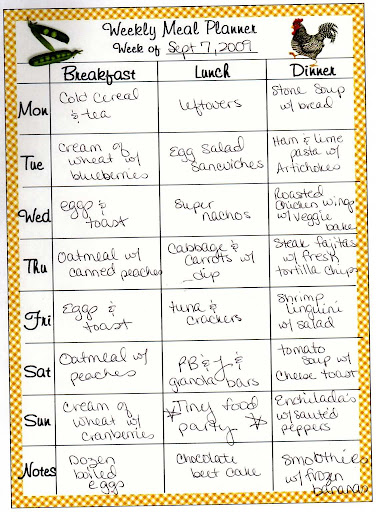 Weekly Meal Planner
Week of Sept 7, 2009
Breakfast Lunch Dinner
Mon
Cold Cereal
& tea
leftovers
Stone Soup
w/ bread
Tue
Cream of
wheat w/
blueberries
Egg Salad
Sanwiches
Ham & lime
pasta w/
Artichokes
Wed
eggs &
toast
Super
nachos
Roasted
Chicken wings
w/ veggie
bake
Thu
Oatmeal w/
canned peaches
Cabbage &
Carrots w/
dip
Steak fajitas
w/ fresh
tortilla chips
Fri
Eggs &
toast
tuna &
crackers
Shrimp
linguini
w/ salad
Sat
Oatmeal w/
peaches
PB & J &
granola bars
tomato
soup w/
Cheese toast
Sun
Cream of
wheat w/
cranberries
Tiny food
party
Enchiladas
w/ sautéd
peppers
Notes
Dozen
boiled
eggs
Chocolate
beet cake
Smoothies
w/ frozen
bananas